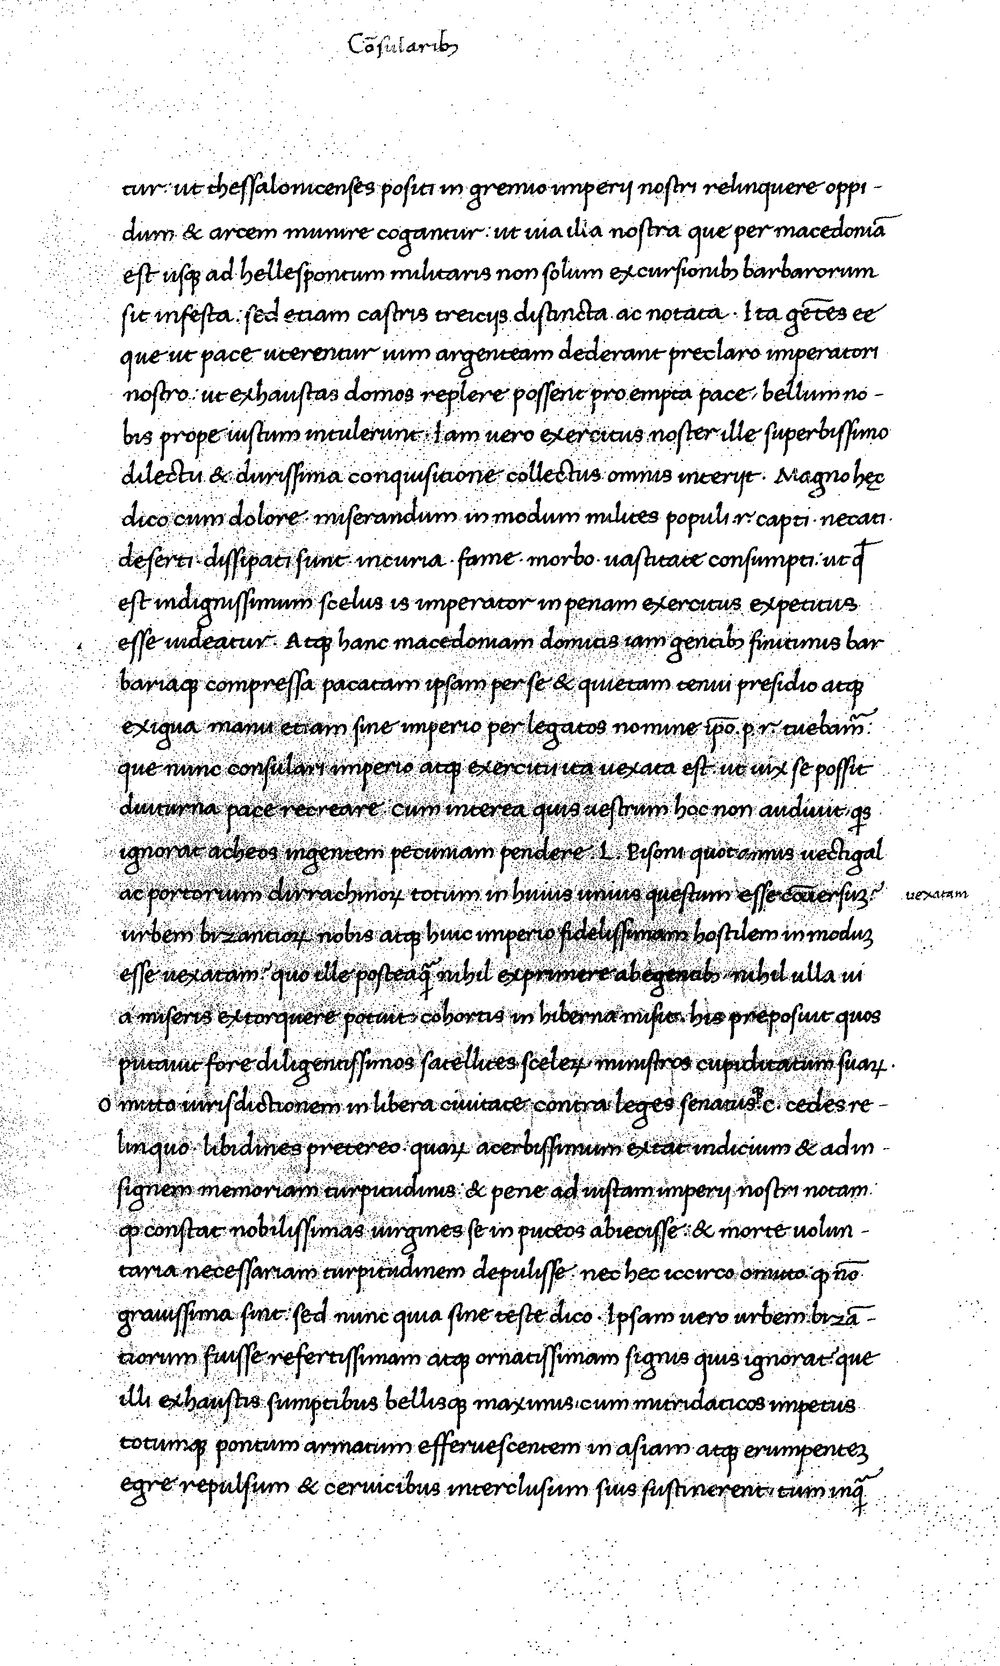 Cōsularibꝫ
tur: ut thessalonicenses positi in gremio imperij nostri relinquere oppi-
dum & arcem munire cogantur: ut uia illa nostra que per macedoniā
est usqꝫ ad hellespontum militaris non solum excursionibꝫ barbarorum
sit infesta: sed etiam castris treicijs distincta ac notata. Ita gētes ee
que ut pace uterentur uim argenteam dederant preclaro imperatori
nostro: ut exhaustas domos replere possent pro empta pace, bellum no-
bis prope iustum intulerunt. Iam uero exercitus noster ille superbissimo
dilectu & durissima conquisitione collectus omnis interijt. Magno hęc
dico cum dolore. miserandum in modum milites populi .r. capti. necati.
deserti. dissipati sunt. incuria. fame. morbo. uastitate consumpti: ut qđ
est indignissimum scelus is imperator in penam exercitus expetitus
esse uideatur. Atqꝫ hanc macedoniam domitis iam gentibꝫ finitimis bar
bariaqꝫ compressa pacatam ipsam per se & quietam tenui presidio atqꝫ
exigua manu etiam sine imperio per legatos nomine ip̄o .p. r. tuebam̃:
que nunc consulari imperio atqꝫ exercitu ita uexata est ut uix se possit
diuturna pace recreare. cum interea quis uestrum hoc non audiuit. qs
ignorat acheos ingentem pecuniam pendere .L. Pisoni quotannis uectigal
ac portorium dirrachinoꝝ totum in huius unius questum esse cōuersuꝫ?
uexatam
urbem bizantioꝝ nobis atqꝫ huic imperio fidelissimam hostilem in moduꝫ
esse uexatam? quo ille posteaq̃ nihil exprimere ab egentibꝫ. nihil ulla ui
a miseris extorquere potuit, cohortis in hiberna misit. his preposuit quos
putauit fore diligentissimos satellites sceleꝝ. ministros cupiditatum suaꝝ.
O mitto iurisdictionem in libera ciuitate contra leges senatusqꝫ c. cedes re-
linquo. libidines pretereo. quaꝝ acerbissimum extat indicium & ad in-
signem memoriam turpitudinis. & pene ad iustam imperij nostri notam.
ꝙ constat nobilissimas uirgines se in puteos abiecisse. & morte uolun-
taria necessariam turpitudinem depulisse. nec hec iccirco omitto ꝙ nō
grauissima sint: sed nunc quia sine teste dico. Ipsam uero urbem bizā-
tiorum fuisse refertissimam atqꝫ ornatissimam signis quis ignorat? que
illi exhaustis sumptibus bellisqꝫ maximis, cum mitridaticos impetus
totumqꝫ pontum armatum efferuescentem in asiam atqꝫ erumpenteꝫ
egre repulsum & ceruicibus interclusum suis sustinerent, tum inq̃